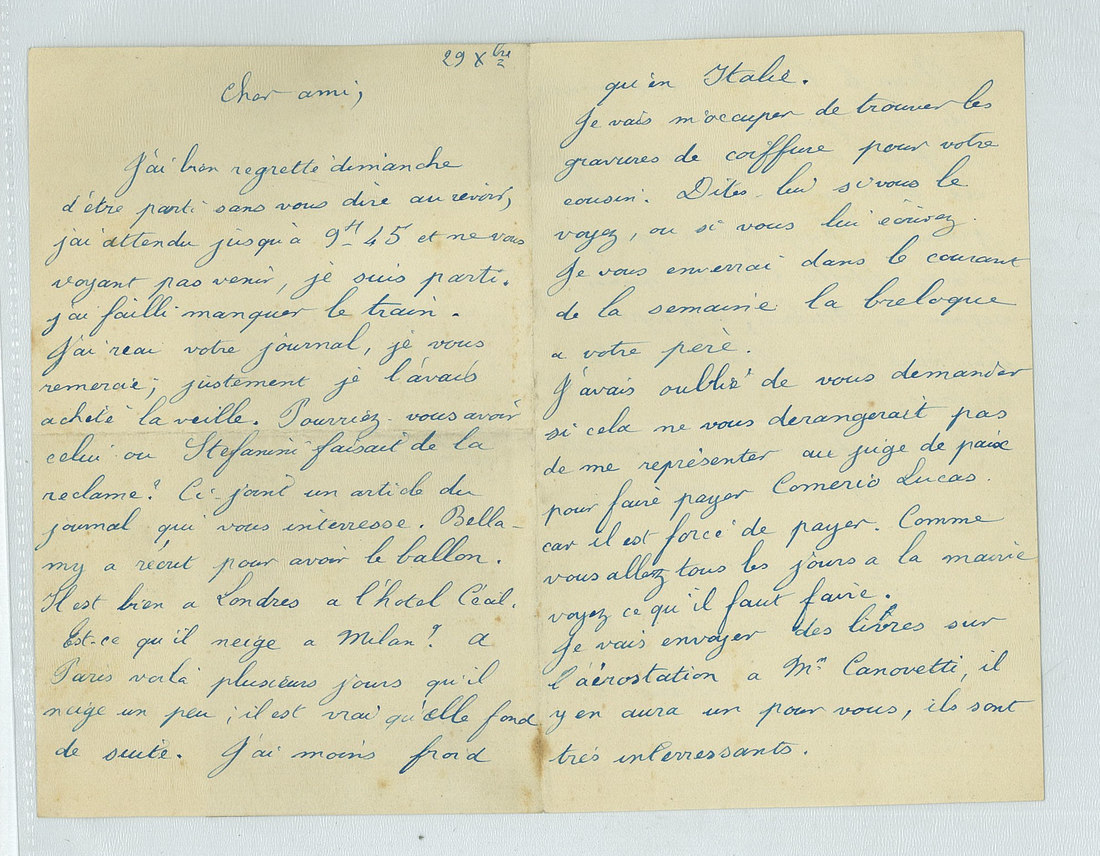 29 Xbre
Cher ami,
J'ai bien regretté dimanche
d'être parti sans vous dire au revoir,
j'ai attendu jusqu'à 9H 45 et ne vous
voyant pas venir, je suis parti.
j'ai failli manquer le train.
J'ai recu votre journal, je vous
remercie; justement je l'avais
acheté la veille. Pourriez-vous avoir
celui ou Stefanini faisait de la
reclame? Ci-joint un article du
journal qui vous interresse. Bella-
my a récrit pour avoir le ballon.
Il est bien a Londres a l'hotel Cécil.
Est-ce qu'il neige a Milan? a
Paris voila plusieurs jours qu'il
neige un peu; il est vrai qu'elle fond
de suite. J'ai moins froid
qu'en Italie.
Je vais m'occuper de trouver les
gravures de coiffure pour votre
cousin. Dites-lui si vous le
voyez, ou si vous lui écrivez.
Je vous enverrai dans le courant
de la semaine la breloque
a votre père.
J'avais oublié de vous demander
si cela ne vous derangerait pas
de me représenter au juge de paix
pour faire payer Comerio Lucas.
car il est forcé de payer. Comme
vous allez tous les jours a la mairie
voyez ce qu'il faut faire.
Je vais envoyer des livres sur
l'aérostation a Mr Canovetti, il
y en aura un pour vous, ils sont
très interressants.